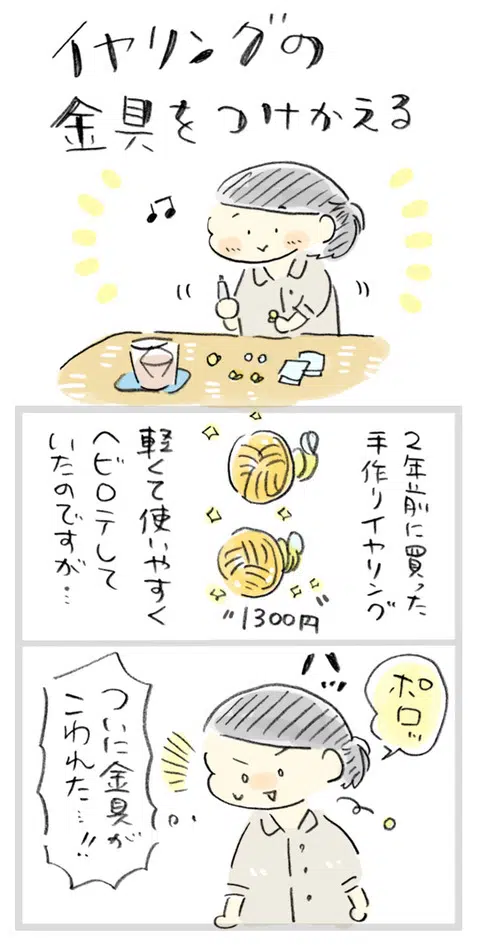 イヤリングの
金具をつけかえる
2年前に買った
手作りイヤリング
"1300円"
軽くて使いやすく
ヘビロテして
いたのですが…
ポロッ
ついに金具が
こわれた…!!